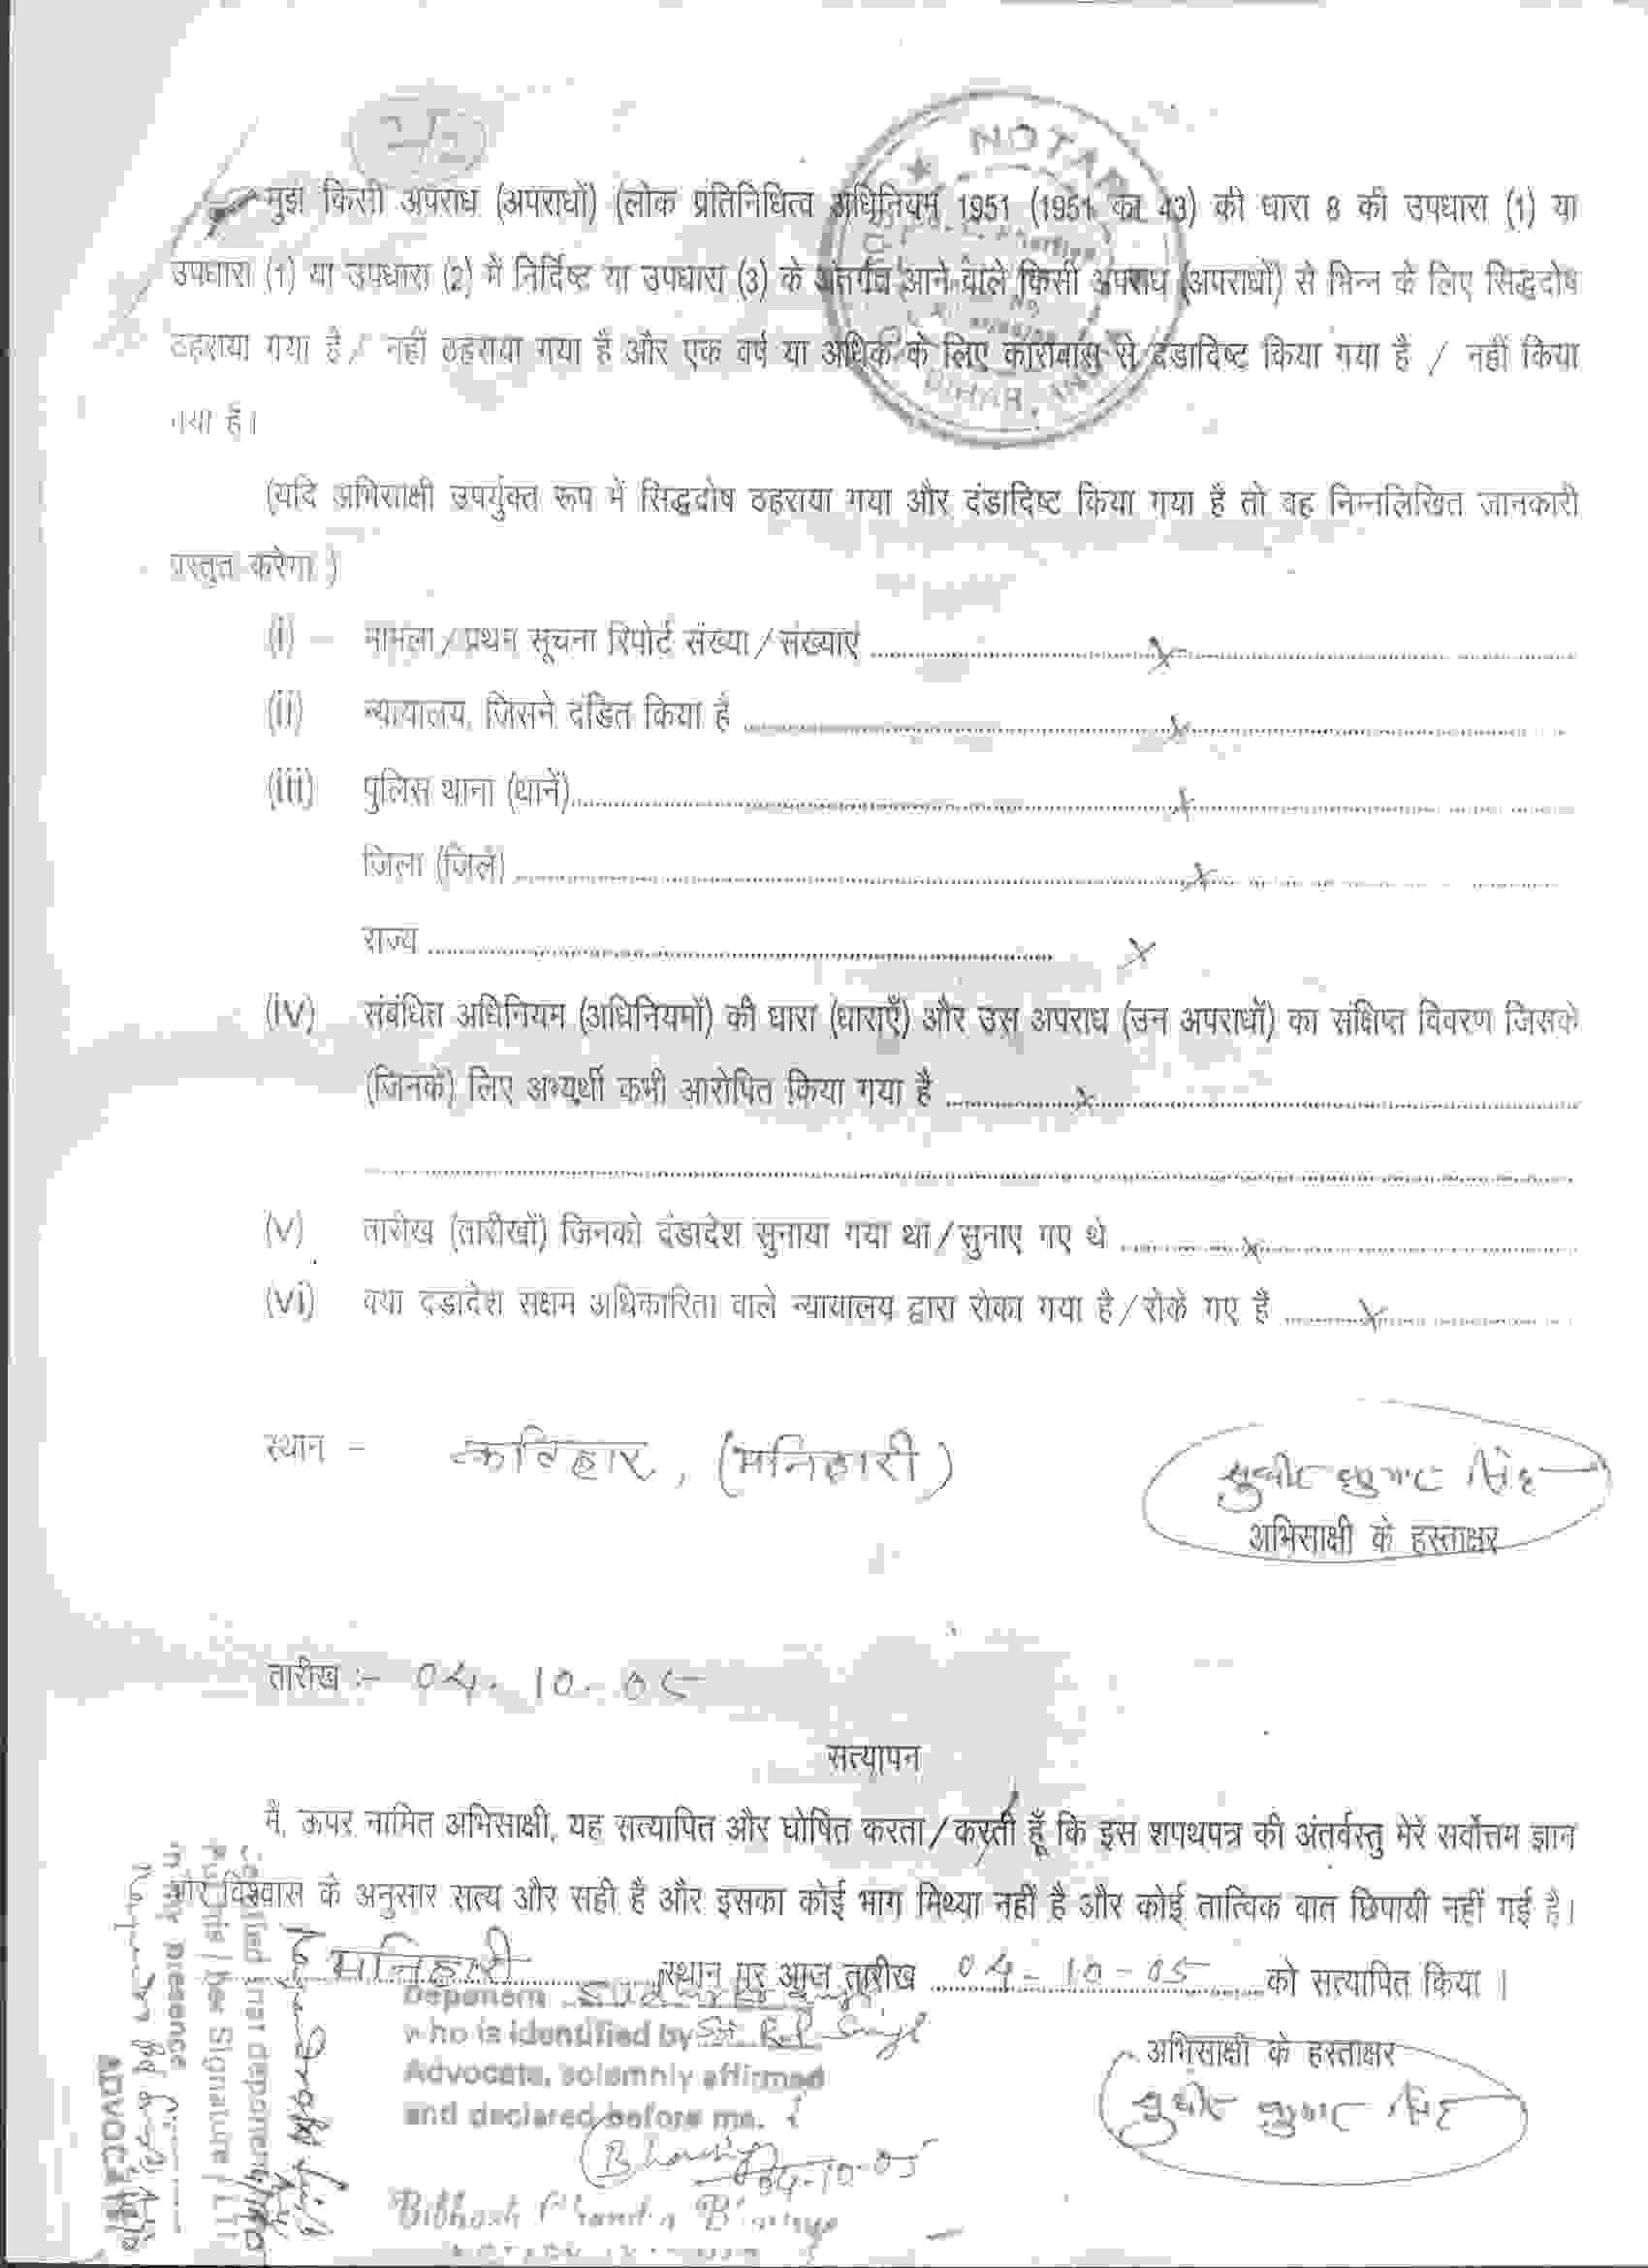 2/2
NOTAR
BIHAR, IND
मुझे किसी अपराध (अपराधों) (लोक प्रतिनिधित्व अधिनियम 1951 (1951 का 43) की धारा 8 की उपधारा (1) या
उपधारा (1) या उपधारा (2) में निर्दिष्ट या उपधारा (3) के अंतर्गत आने वाले किसी अपराध (अपराधों) से भिन्न के लिए सिद्धदोष
ठहराया गया है / नहीं ठहराया गया है और एक वर्ष या अधिक के लिए कारावास से दंडादिष्ट किया गया है / नहीं किया
गया है।
(यदि अभिसाक्षी उपर्युक्त रूप में सिद्धदोष ठहराया गया और दंडादिष्ट किया गया है तो वह निम्नलिखित जानकारी
प्रस्तुत करेगा )
(i) – मामला/प्रथम सूचना रिपोर्ट संख्या/संख्याएं ........ x ........
(ii) न्यायालय, जिसने दंडित किया है ........ x ........
(iii) पुलिस थाना (थानें) ........ x ........
जिला (जिले) ........ x ........
राज्य ........ x
(iv) संबंधित अधिनियम (अधिनियमों) की धारा (धाराएँ) और उस अपराध (उन अपराधों) का संक्षिप्त विवरण जिसके
(जिनके) लिए अभ्यर्थी कभी आरोपित किया गया है ........ x ........
(v) तारीख (तारीखों) जिनको दंडादेश सुनाया गया था/सुनाए गए थे ........ x ........
(vi) क्या दंडादेश सक्षम अधिकारिता वाले न्यायालय द्वारा रोका गया है/रोकें गए हैं ........ x ........
स्थान – कटिहार, (मनिहारी)
सुधीर कुमार सिंह
अभिसाक्षी के हस्ताक्षर
तारीख :- 04. 10. 05
सत्यापन
मैं, ऊपर नामित अभिसाक्षी, यह सत्यापित और घोषित करता/करती हूँ कि इस शपथपत्र की अंतर्वस्तु मेरे सर्वोत्तम ज्ञान
और विश्वास के अनुसार सत्य और सही है और इसका कोई भाग मिथ्या नहीं है और कोई तात्विक बात छिपायी नहीं गई है।
मनिहारी स्थान पर आज तारीख 04-10-05 को सत्यापित किया ।
Deponent
who is identified by Sri R. Singh
Advocate, solemnly affirmed
and declared before me.
04-10-05
Bibhash Chandra
अभिसाक्षी के हस्ताक्षर
सुधीर कुमार सिंह
that deponent
his/her Signature / LTI
in my presence
ADVOCATE